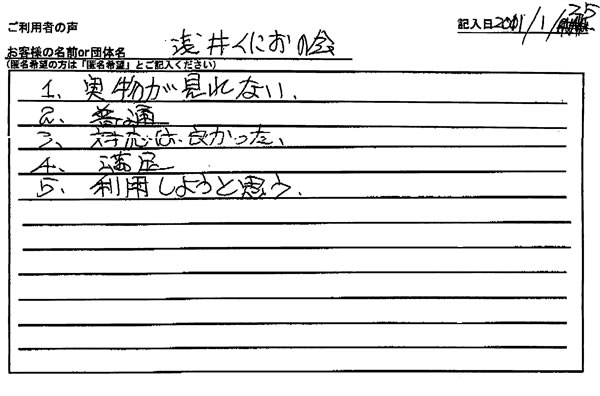 ご利用者の声
記入日2011/1/25
お客様の名前or団体名 浅井くにおの会
(匿名希望の方は「匿名希望」とご記入ください)
1、実物が見れない、
2、普通
3、対応は良かった、
4、満足
5、利用しようと思う、